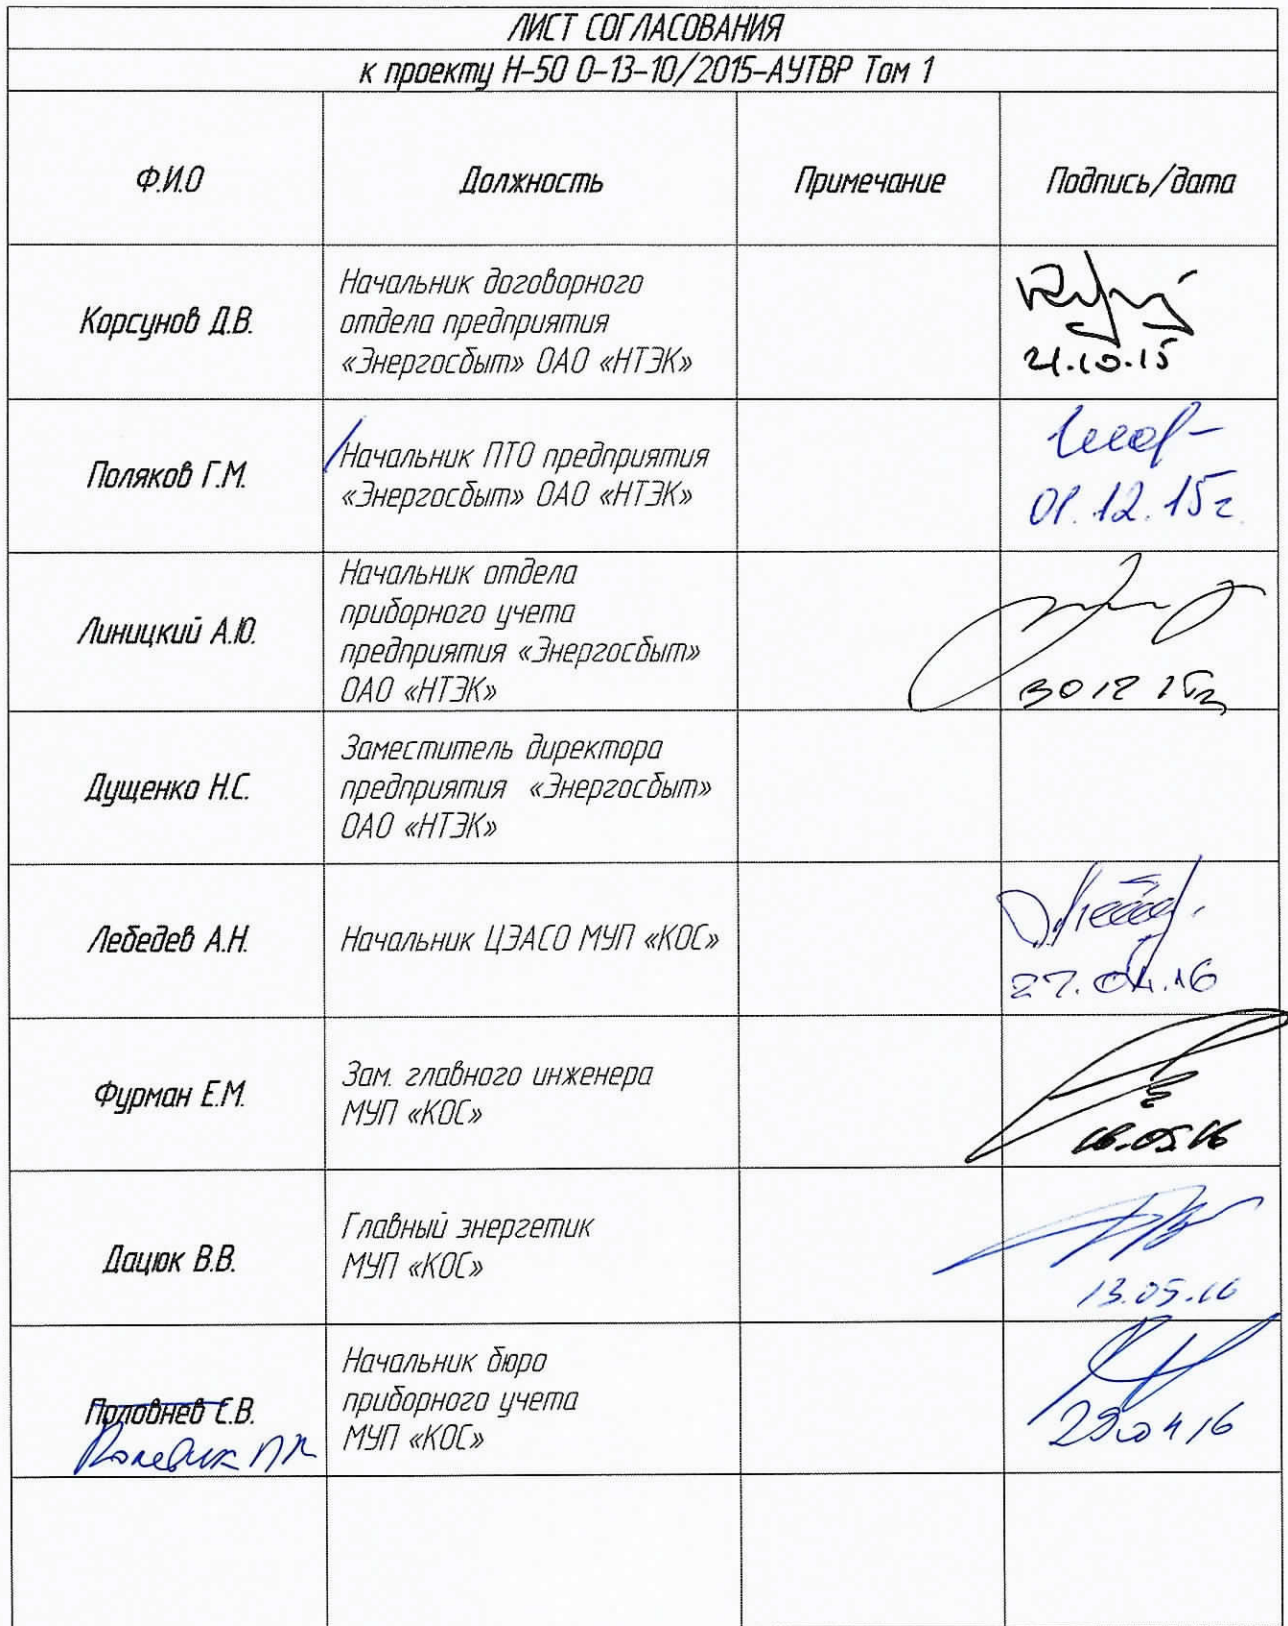 ЛИСТ СОГЛАСОВАНИЯ
к проекту Н-50 0-13-10/2015-АУТВР Том 1
Ф.И.О Должность Примечание Подпись/дата
Корсунов Д.В.
Начальник договорного
отдела предприятия
«Энергосбыт» ОАО «НТЭК»
21.10.15
Поляков Г.М.
Начальник ПТО предприятия
«Энергосбыт» ОАО «НТЭК»
01.12.15г.
Линицкий А.Ю.
Начальник отдела
приборного учета
предприятия «Энергосбыт»
ОАО «НТЭК»
30 12 15г
Дущенко Н.С.
Заместитель директора
предприятия «Энергосбыт»
ОАО «НТЭК»
Лебедев А.Н.
Начальник ЦЭАСО МУП «КОС»
27.04.16
Фурман Е.М.
Зам. главного инженера
МУП «КОС»
16.05.16
Дацюк В.В.
Главный энергетик
МУП «КОС»
13.05.16
Половнев С.В.
Начальник бюро
приборного учета
МУП «КОС»
29.04 16